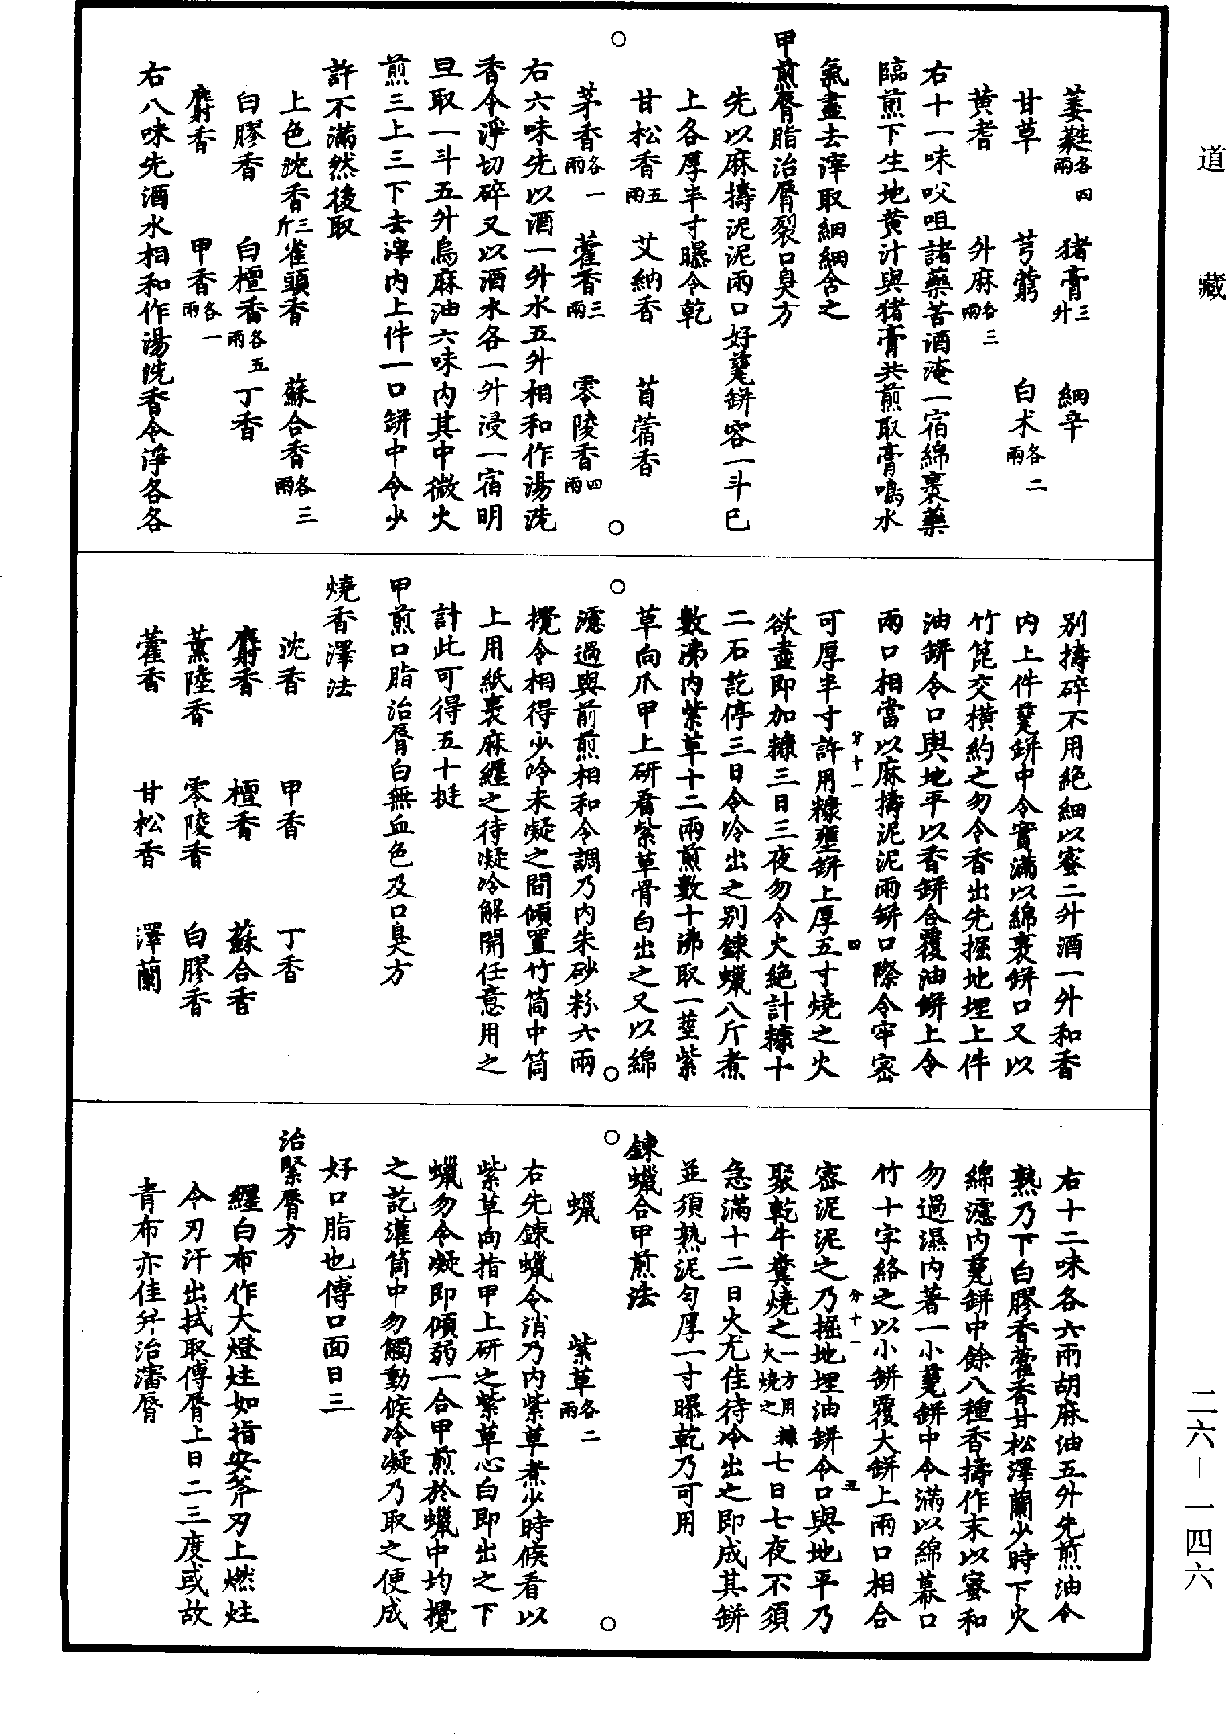 道藏
萎蕤各四兩 猪膏三升 細辛
甘草 芎藭 白术各二兩
黃耆 升麻各三兩
右十一味㕮咀諸藥苦酒淹一宿綿裹藥
臨煎下生地黃汁與猪膏共煎取膏鳴水
氣盡去滓取細細含之
甲煎脣脂治脣裂口臭方
先以麻擣泥泥兩口好甆缾容一斗已
上各厚半寸曝令乾
甘松香五兩 艾納香 苜蓿香
茅香各一兩 藿香三兩 零陵香四兩
右六味先以酒一升水五升相和作湯洗
香令淨切碎又以酒水各一升浸一宿明
旦取一斗五升烏麻油六味內其中微火
煎三上三下去滓內上件一口缾中令少
許不滿然後取
上色沈香三斤 雀頭香 蘇合香各三兩
白膠香 白檀香各五兩 丁香
麝香 甲香各一兩
右八味先酒水相和作湯洗香令淨各各
別擣碎不用絕細以蜜二升酒一升和香
內上件甆缾中令實滿以綿裹缾口又以
竹篦交橫約之勿令香出先掘地埋上件
油缾令口與地平以香缾合覆油缾上令
兩口相當以麻擣泥泥兩缾口際令牢密
可厚半寸許用糠壅缾上厚五寸燒之火
分十一
四
欲盡即加糠三日三夜勿令火絕計糠十
二石訖停三日令冷出之別鍊蠟八斤煮
數沸內紫草十二兩煎數十沸取一莖紫
草向爪甲上研看紫草骨白出之又以綿
濾過與前煎相和令調乃內朱砂粉六兩
攪令相得少冷未凝之間傾置竹筒中筒
上用紙裹麻纏之待凝冷解開任意用之
計此可得五十挺
甲煎口脂治脣白無血色及口臭方
燒香澤法
沈香 甲香 丁香
麝香 檀香 蘇合香
薰陸香 零陵香 白膠香
藿香 甘松香 澤蘭
右十二味各六兩胡麻油五升先煎油令
熟乃下白膠香藿香甘松澤蘭少時下火
綿濾內甆缾中餘八種香擣作末以蜜和
勿過濕內著一小甆缾中令滿以綿幕口
竹十字絡之以小缾覆大缾上兩口相合
密泥泥之乃掘地埋油缾令口與地平乃
分十一
五
聚乾牛糞燒之一方用糠火燒之七日七夜不須
急滿十二日火尤佳待冷出之即成其缾
並須熟泥勻厚一寸曝乾乃可用
鍊蠟合甲煎法
蠟 紫草各二兩
右先鍊蠟令消乃內紫草煮少時候看以
紫草向指甲上研之紫草心白即出之下
蠟勿令凝即傾弱一合甲煎於蠟中均攪
之訖灌筒中勿觸動候冷凝乃取之便成
好口脂也傅口面日三
治緊脣方
纏白布作大燈炷如指安斧刃上燃炷
令刃汗出拭取傅脣上日二三度或故
青布亦佳并治瀋脣
二六—一四六